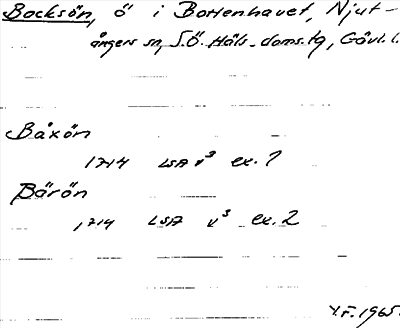 Backsön, ö i Bottenhavet, Njut-
ångers sn, S.Ö. Häls. doms. tg, Gävl. l.
Båxön
1714 LSA v³ ex. 1
Bärön
1714 LSA v³ ex. 2
Y.F. 1965.